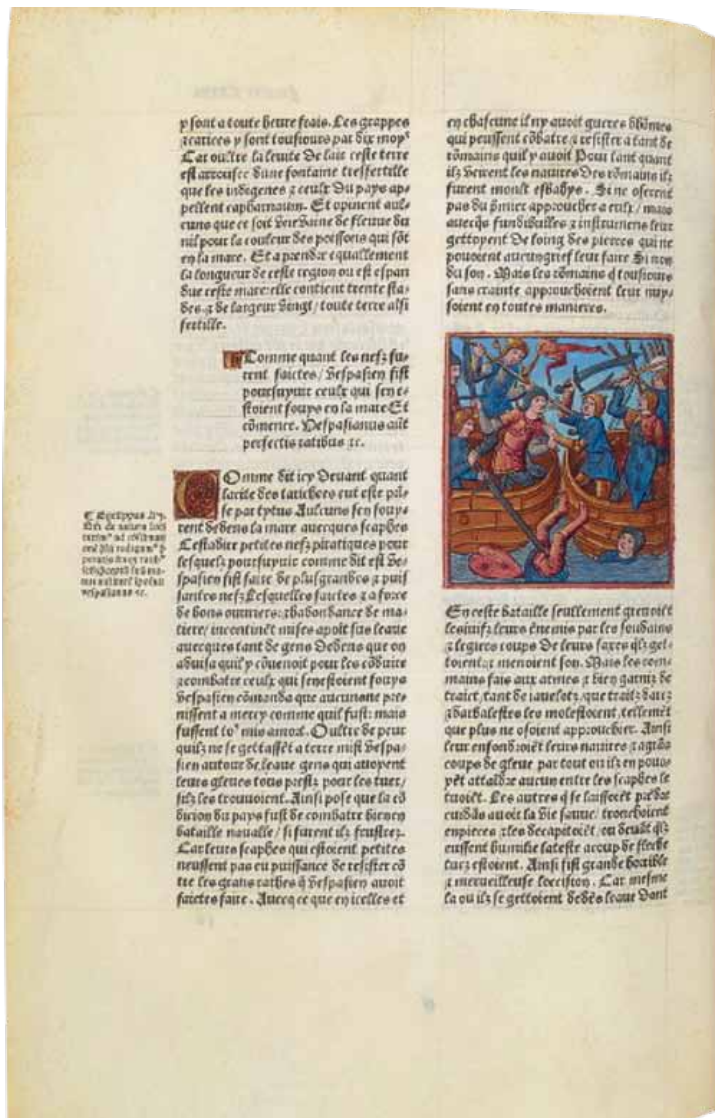 y sont a toute heure frais. Les grappes
⁊ carices y sont tousiours par dix moys
Car oultre la leute de lair ceste terre
est arrousee dune fontaine tresfertille
que les indigenes ⁊ ceulx du pays ap-
pellent capharnaum. Et opinent aul-
cuns que ce soit vne vaine de fleuue du
nil pour la couleur des poissons qui sōt
en la mare. Et a prendre equallement
la longueur de ceste region ou est espan
due ceste mare: elle contient trente sta-
des. ⁊ de largeur vingt / toute terre alsi
fertille.
Comme quant les nefz fu-
rent faictes / Vespasien fist
poursuyuir ceulx qui sen e-
stoient fouys en la mare Et
cōmence. Vespasianus aūt
perfectis ratibus ⁊c.
COmme dit icy deuant quant
lacite des tarichees eut este pri-
se par tytus Aulcuns sen fouy-
rent dedens la mare auecques scaphes
Cestadire petites nefz piratiques pour
lesquelz poursuyuir comme dit est Ve-
spasien fist faire de plusgrandes ⁊ puis
santes nefz Lesquelles faictes ⁊ a force
de bons ouuriers: ⁊ habondance de ma-
tiere / incontinēt mises apoit sus leaue
auecques tant de gens dedens que on
aduisa quil y cōuenoit pour les cōduire
⁊ combatre ceulx qui senestoient fouys
Vespasien cōmanda que aucuns ne pre-
nissent a mercy comme quil fust: mais
fussent to⁹ mis amort. Oultre de peur
quilz ne se gettassēt a terre mist Vespa-
sien autour de leaue gens qui auoyent
leurs gleues tous prestz pour les tuer /
silz les trouuoient. Ainsi pose que la cō
dicion du pays fust de combatre bien en
bataille naualle / si furent ilz frustrez.
Car leurs scaphes qui estoient petites
neussent pas eu puissance de resister cō
tre les grans rathes q̄ Vespasien auoit
faictes faire. Auecq ce que en icelles et
Egesippus
vespasianus ⁊c.
en chascune il ny auoit gueres dhōmes
qui peussent cōbatre ⁊ resister a tant de
rōmains quil y auoit Pour tant quant
ilz veirent les nauires des rōmains ilz
furent moult esbahys. Si ne oserent
pas du p̄mier approucher a eulx / mais
auecq̄s fundibulles ⁊ instrumens leur
gettoyent de loing des pierres qui ne
pouoient aucun grief leur faire Si non
du son. Mais les rōmains q̄ tousiours
sans crainte approuchoient leur nuy-
soient en toutes manieres.
En ceste bataille seullement greuoiēt
les iuifz leurs ēnemis par les soubdains
⁊ legiers coups de leurs saxes qlz get-
toient: ⁊ menoient son. Mais les rom-
mains fais aux armes ⁊ bien garnis de
traict, tant de iauelotz, que traitz darcz
⁊ darbalestres les molestoient, tellemēt
que plus ne osoient approuchier. Ainsi
leur enfondroiēt leurs nauires ⁊ a grās
coups de gleue par tout ou ilz en pouo-
yēt attaīdre aucun entre les scaphes le
tuoiēt. Les autres q̄ se laissoēt prēdre
cuidās auoir la vie sauue / tronchoient
en pieces ⁊ les decapitoiēt, ou deuāt qlz
eussent humilie lateste a coup de fleche
tuez estoient. Ainsi fist grande horrible
⁊ merueilleuse loccision. Car mesme
la ou ilz se gettoient dedēs leaue dont